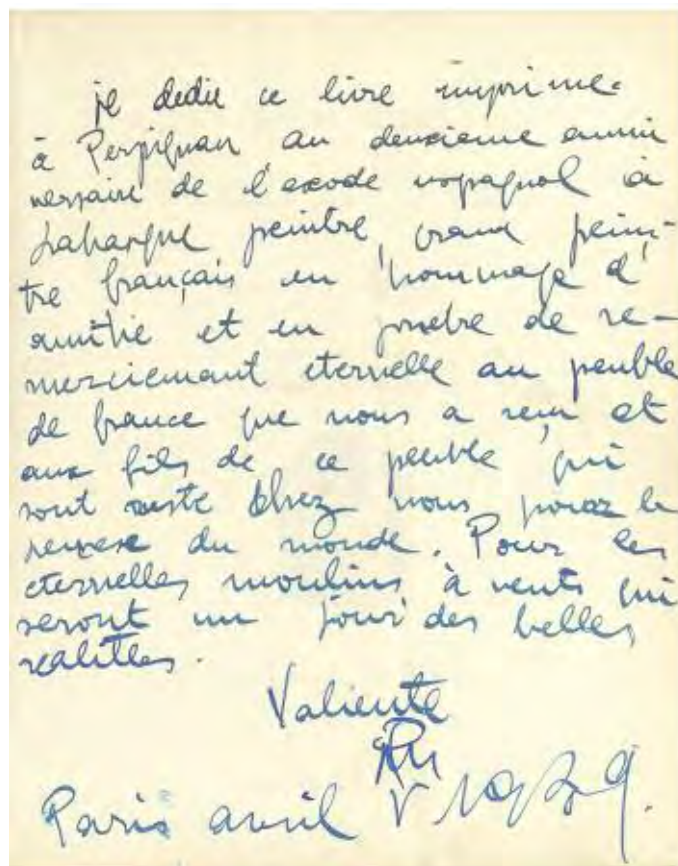 je dedie ce livre imprime
à Perpignan au deuxieme anni
versaire de l'exode espagnol a
Labarque peintre, grand pein-
tre français en hommage d'
amitie et en de re-
merciemant eternelle au peuble
de france que nous a reçu et
aux fils de ce peuble qui
sont reste chez nous pour la
du monde. Pour les
eternelles moulins à vents qui
seront un jour des belles
realitles.
Valiente
Paris avril